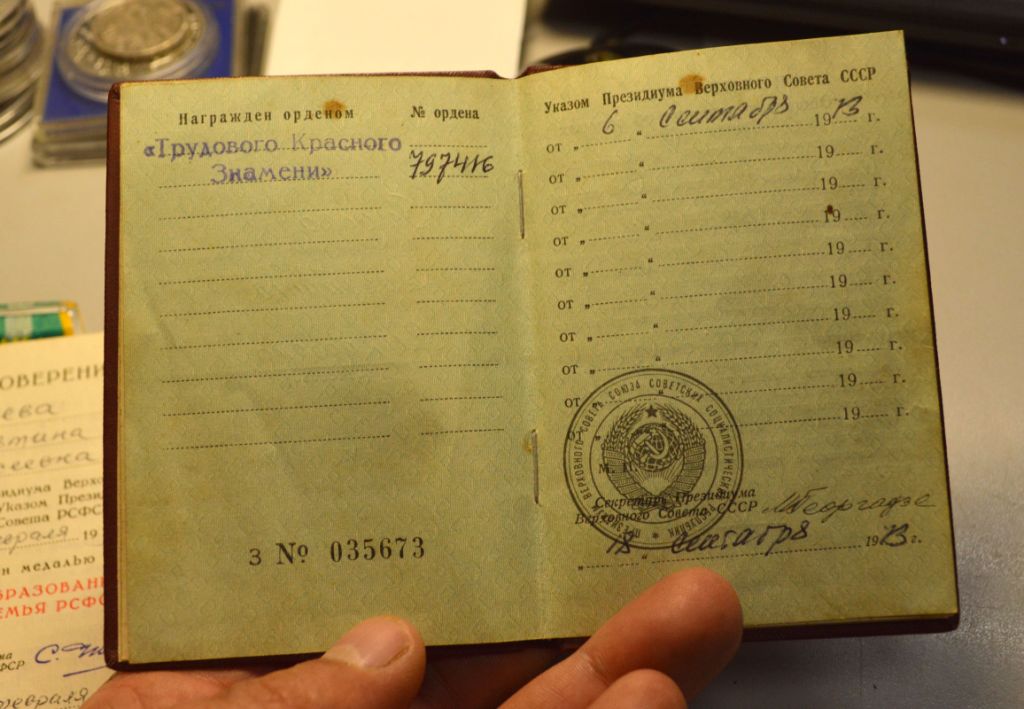 Награжден орденом
№ ордена
«Трудового Красного
Знамени»
797416
З № 035673
Указом Президиума Верховного Совета СССР
от „ 6 “ сентября 1973 г.
от „ “ 19 г.
от „ “ 19 г.
от „ “ 19 г.
от „ “ 19 г.
от „ “ 19 г.
от „ “ 19 г.
от „ “ 19 г.
от „ “ 19 г.
“ 19 г.
М. П.
Секретарь Президиума
Верховного Совета СССР МГеоргадзе
„ 18 “ сентября 1973 г.
ПРЕЗИДИУМ ВЕРХОВНОГО СОВЕТА СОЮЗА СОВЕТСКИХ СОЦИАЛИСТИЧЕСКИХ РЕСПУБЛИК
ОВЕРЕНИ
ева
тина
еевна
зидиума Верхо
Указом Прези
Совета РСФС
евраля 19
н медалью
БРАЗОВАН
ЕМЬЯ РСФС
ФСР
евраля